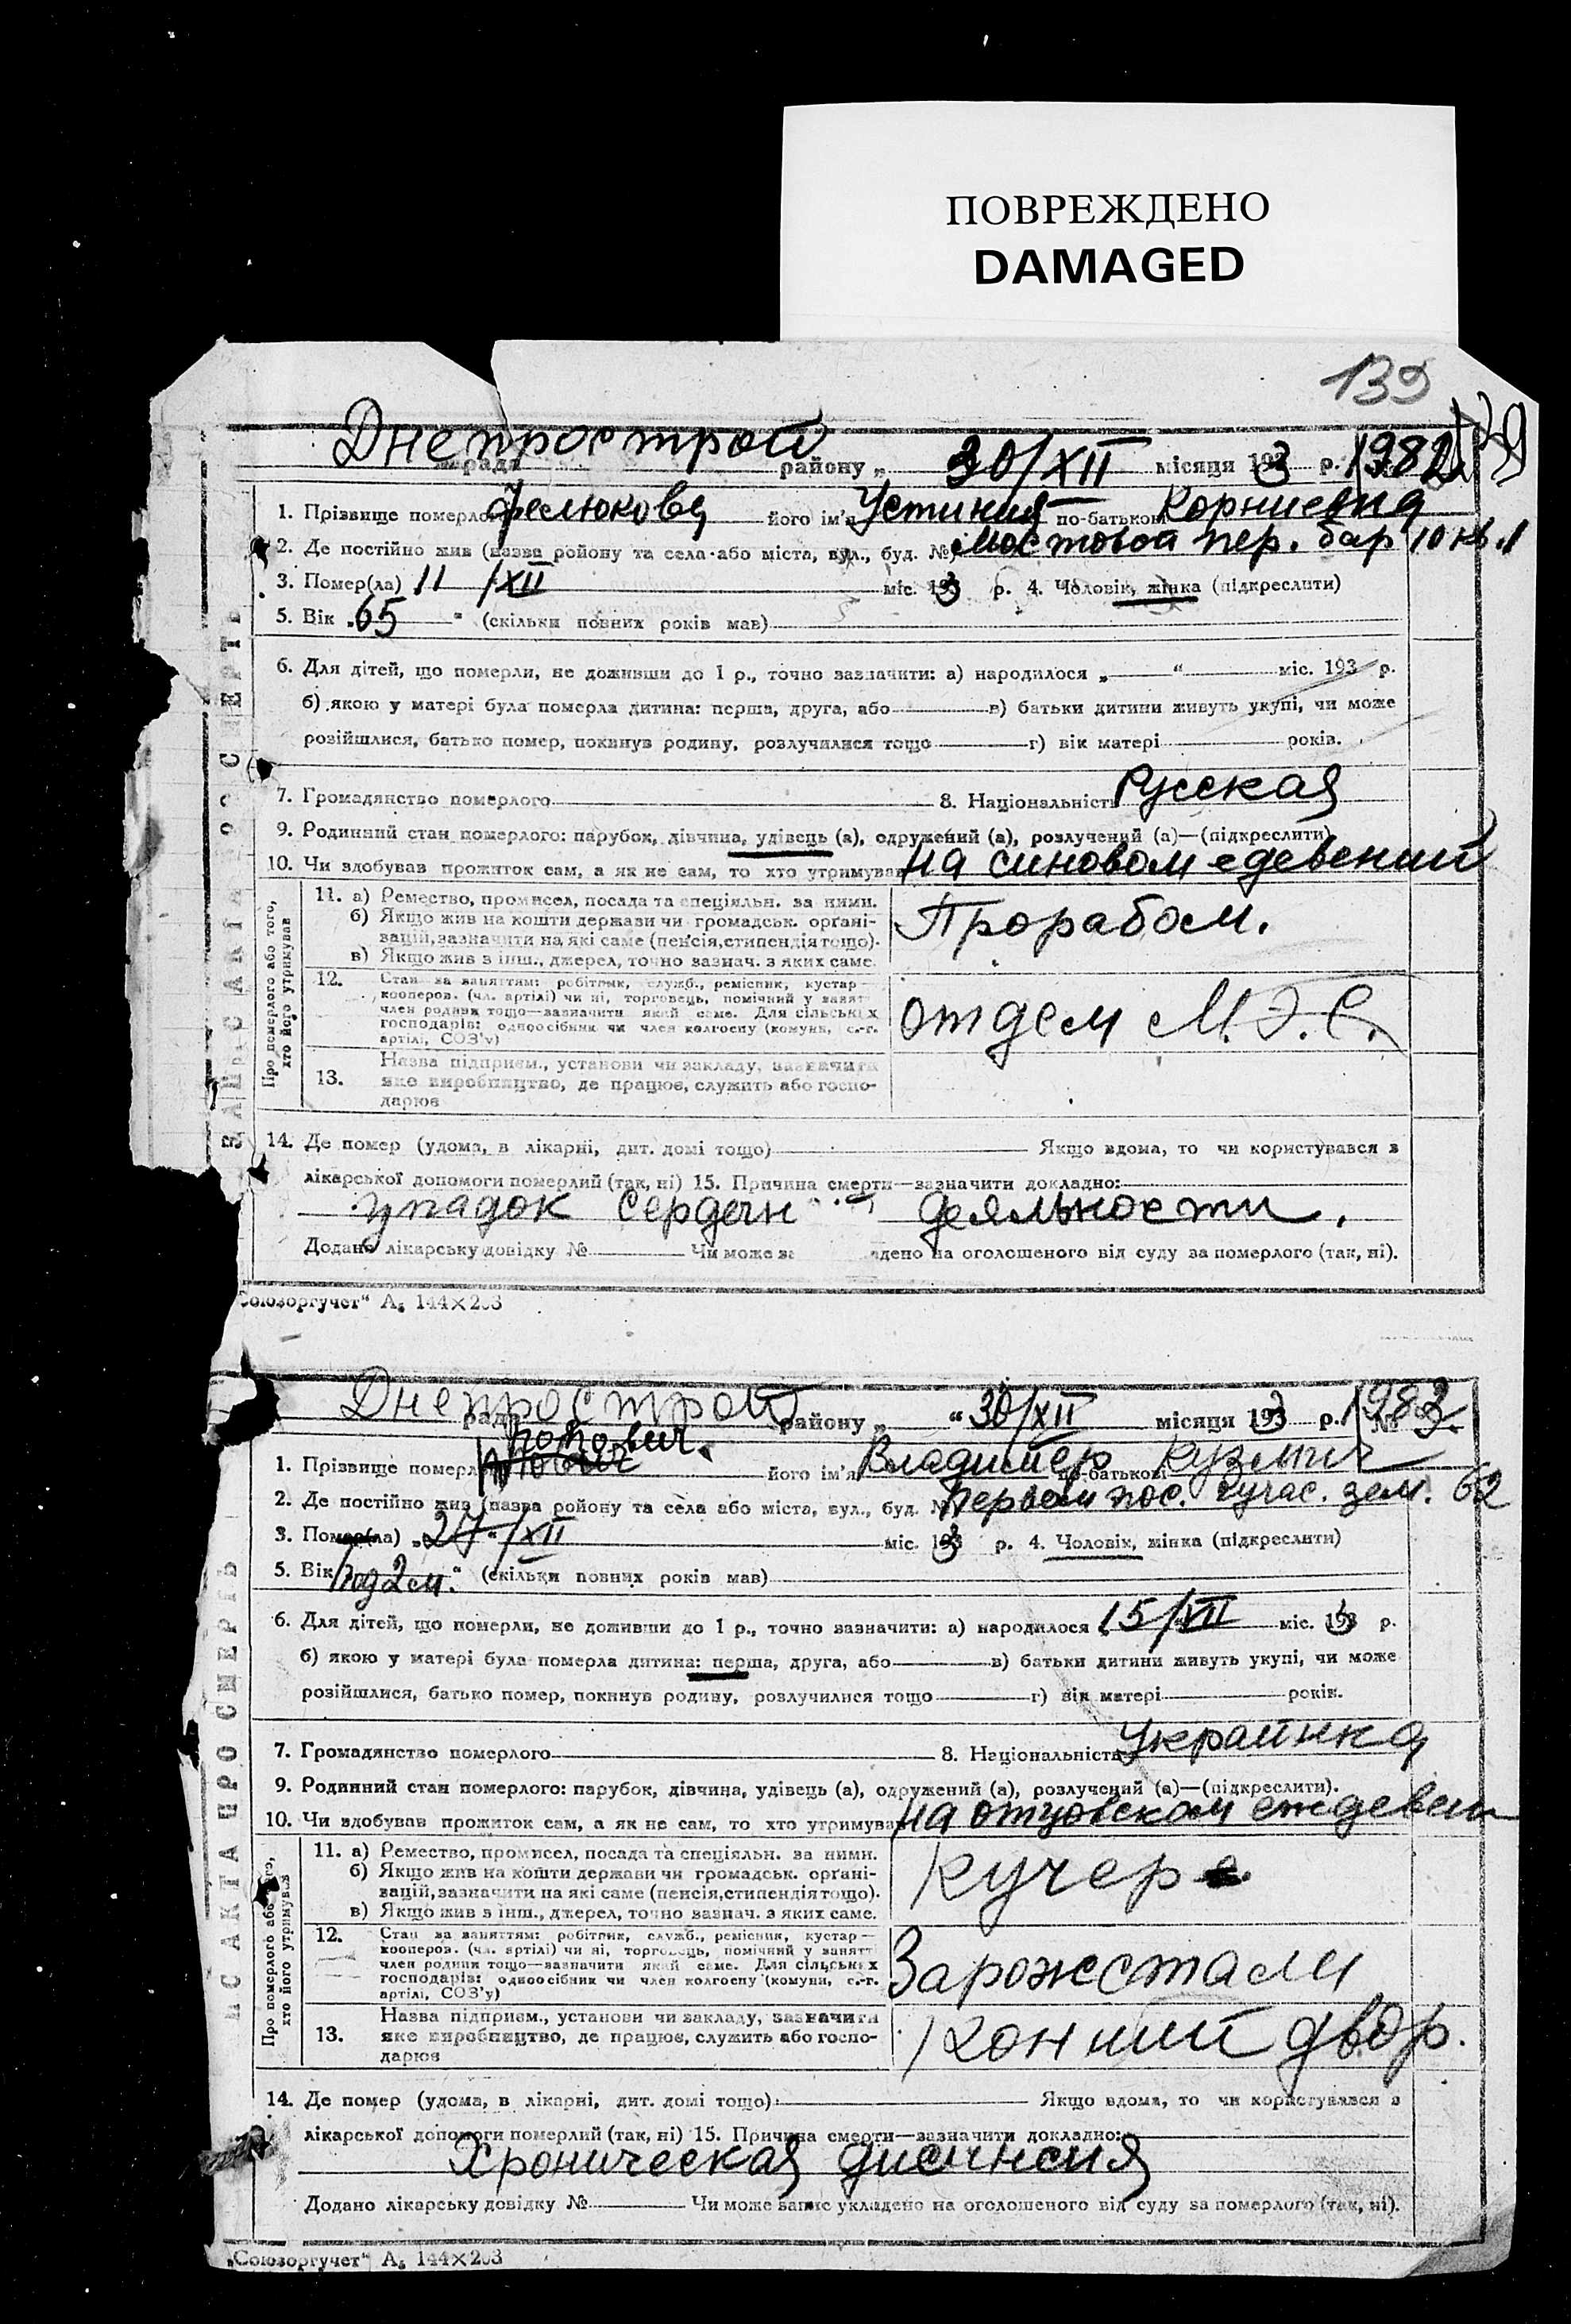 ПОВРЕЖДЕНО
DAMAGED
139
Днепрострой
району „ 30/XII місяця 193 3 р. 1982
1. Прізвище померло його ім'я Устиния по-батькові Корниевна
2. Де постійно жив (назва району та села або міста, вул., буд. №) Мостовой пер. бар 10 кв. 1
3. Помер(ла) 11 /XII міс. 193 р. 4. Чоловік, жінка (підкреслити)
5. Вік „65 “ (скільки повних років мав)
6. Для дітей, що померли, не доживши до 1 р., точно зазначити: а) народилося „ “ міс. 193 р.
б) якою у матері була померла дитина: перша, друга, або в) батьки дитини живуть укупі, чи може
розійшлися, батько помер, покинув родину, розлучилися тощо г) вік матері років.
7. Громадянство померлого 8. Національність Русская
9. Родинний стан померлого: парубок, дівчина, удівець (а), одружений (а), розлучений (а)—(підкреслити)
10. Чи здобував прожиток сам, а як не сам, то хто утримував на синовом
Про померлого або того, хто його утримував
11. а) Ремество, промисел, посада та спеціяльн. за ними.
б) Якщо жив на кошти держави чи громадськ. органі-
зацій, зазначити на які саме (пенсія, стипендія тощо).
в) Якщо жив з інш., джерел, точно зазнач. з яких саме.
Прорабом.
12. Стан за заняттям: робітник, служб., ремісник, кустар—
кооперов. (чл. артілі) чи ні, торговець, помічний у занятт
член родини тощо—зазначити який саме. Для сільських
господарів: одноосібник чи член колгоспу (комуни, с.-г.
артілі, СОЗ'у)
отдем М.Э.С.
13. Назва підприєм., установи чи закладу, зазначити
яке виробництво, де працює, служить або госпо-
дарює
14. Де помер (удома, в лікарні, дит. домі тощо) Якщо вдома, то чи користувався з
лікарської допомоги померлий (так, ні) 15. Причина смерти—зазначити докладно:
упадок сердечн деяльности.
Додано лікарську довідку № Чи може за дено на оголошеного від суду за померлого (так, ні).
Союзоргучет“ А₅ 144×203
Днепрострой
рада району „ “ 30/XII місяця 193 3 р. № 1983
Попович.
1. Прізвище померл його ім'я Владимер по-батькові Кузмич
2. Де постійно жив (назва району та села або міста, вул., буд. № Первом пос. учас. зем. 62
3. Помер(ла) „27 /XII міс. 193 р. 4. Чоловік, жінка (підкреслити)
5. Вік 2 м. “ (скільки повних років мав)
6. Для дітей, що померли, не доживши до 1 р., точно зазначити: а) народилося „ 15/VII міс. 193 р.
б) якою у матері була померла дитина: перша, друга, або в) батьки дитини живуть укупі, чи може
розійшлися, батько помер, покинув родину, розлучилися тощо г) вік матері років.
7. Громадянство померлого 8. Національність Украинка
9. Родинний стан померлого: парубок, дівчина, удівець (а), одружений (а), розлучений (а)—(підкреслити).
10. Чи здобував прожиток сам, а як не сам, то хто утримував на отцовском
Про померлого або того, хто його утримував
11. а) Ремество, промисел, посада та спеціяльн. за ними.
б) Якщо жив на кошти держави чи громадськ. органі-
зацій, зазначити на які саме (пенсія, стипендія тощо).
в) Якщо жив з інш., джерел, точно зазнач. з яких саме.
Кучер
12. Стан за заняттям: робітник, служб., ремісник, кустар—
кооперов. (чл. артілі) чи ні, торговець, помічний у занятт
член родини тощо—зазначити який саме. Для сільських
господарів: одноосібник чи член колгоспу (комуни, с.-г.
артілі, СОЗ'у)
Запрожстали
13. Назва підприєм., установи чи закладу, зазначити
яке виробництво, де працює, служить або госпо-
дарює
Конний двор.
14. Де помер (удома, в лікарні, дит. домі тощо) Якщо вдома, то чи користувався з
лікарської допомоги померлий (так, ні) 15. Причина смерти—зазначити докладно:
Хроническая
Додано лікарську довідку № Чи може запис укладено на оголошеного від суду за померлого (так, ні).
„Союзоргучет“ А₅ 144×203